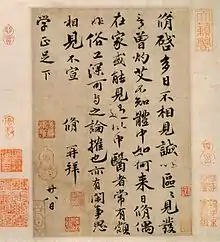 脩啓多日不相見誠以區區見發
言曾灼艾不知體中如何來日脩偶
在家或能見過此中醫者常有頗
非俗工深可與之論搉也亦有閑事思
相見不宣 脩再拜 廿八日
學正足下